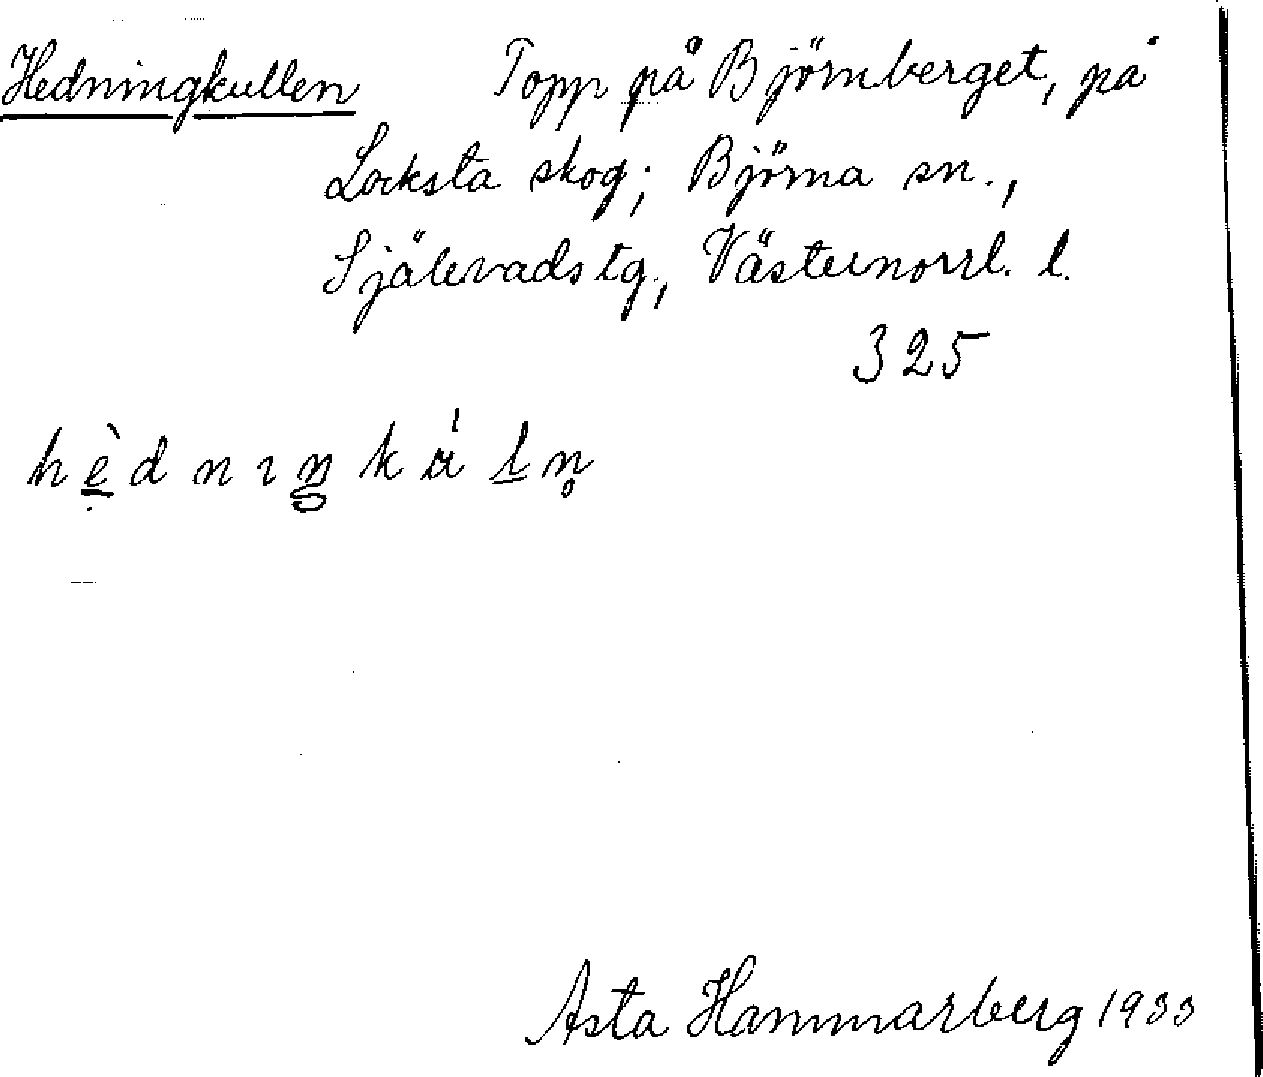 Hedningkullen Topp på Björnberget, på
Locksta skog; Björna sn.,
Själevads tg, Västernorrl. l.
325
Asta Hammarberg 1933